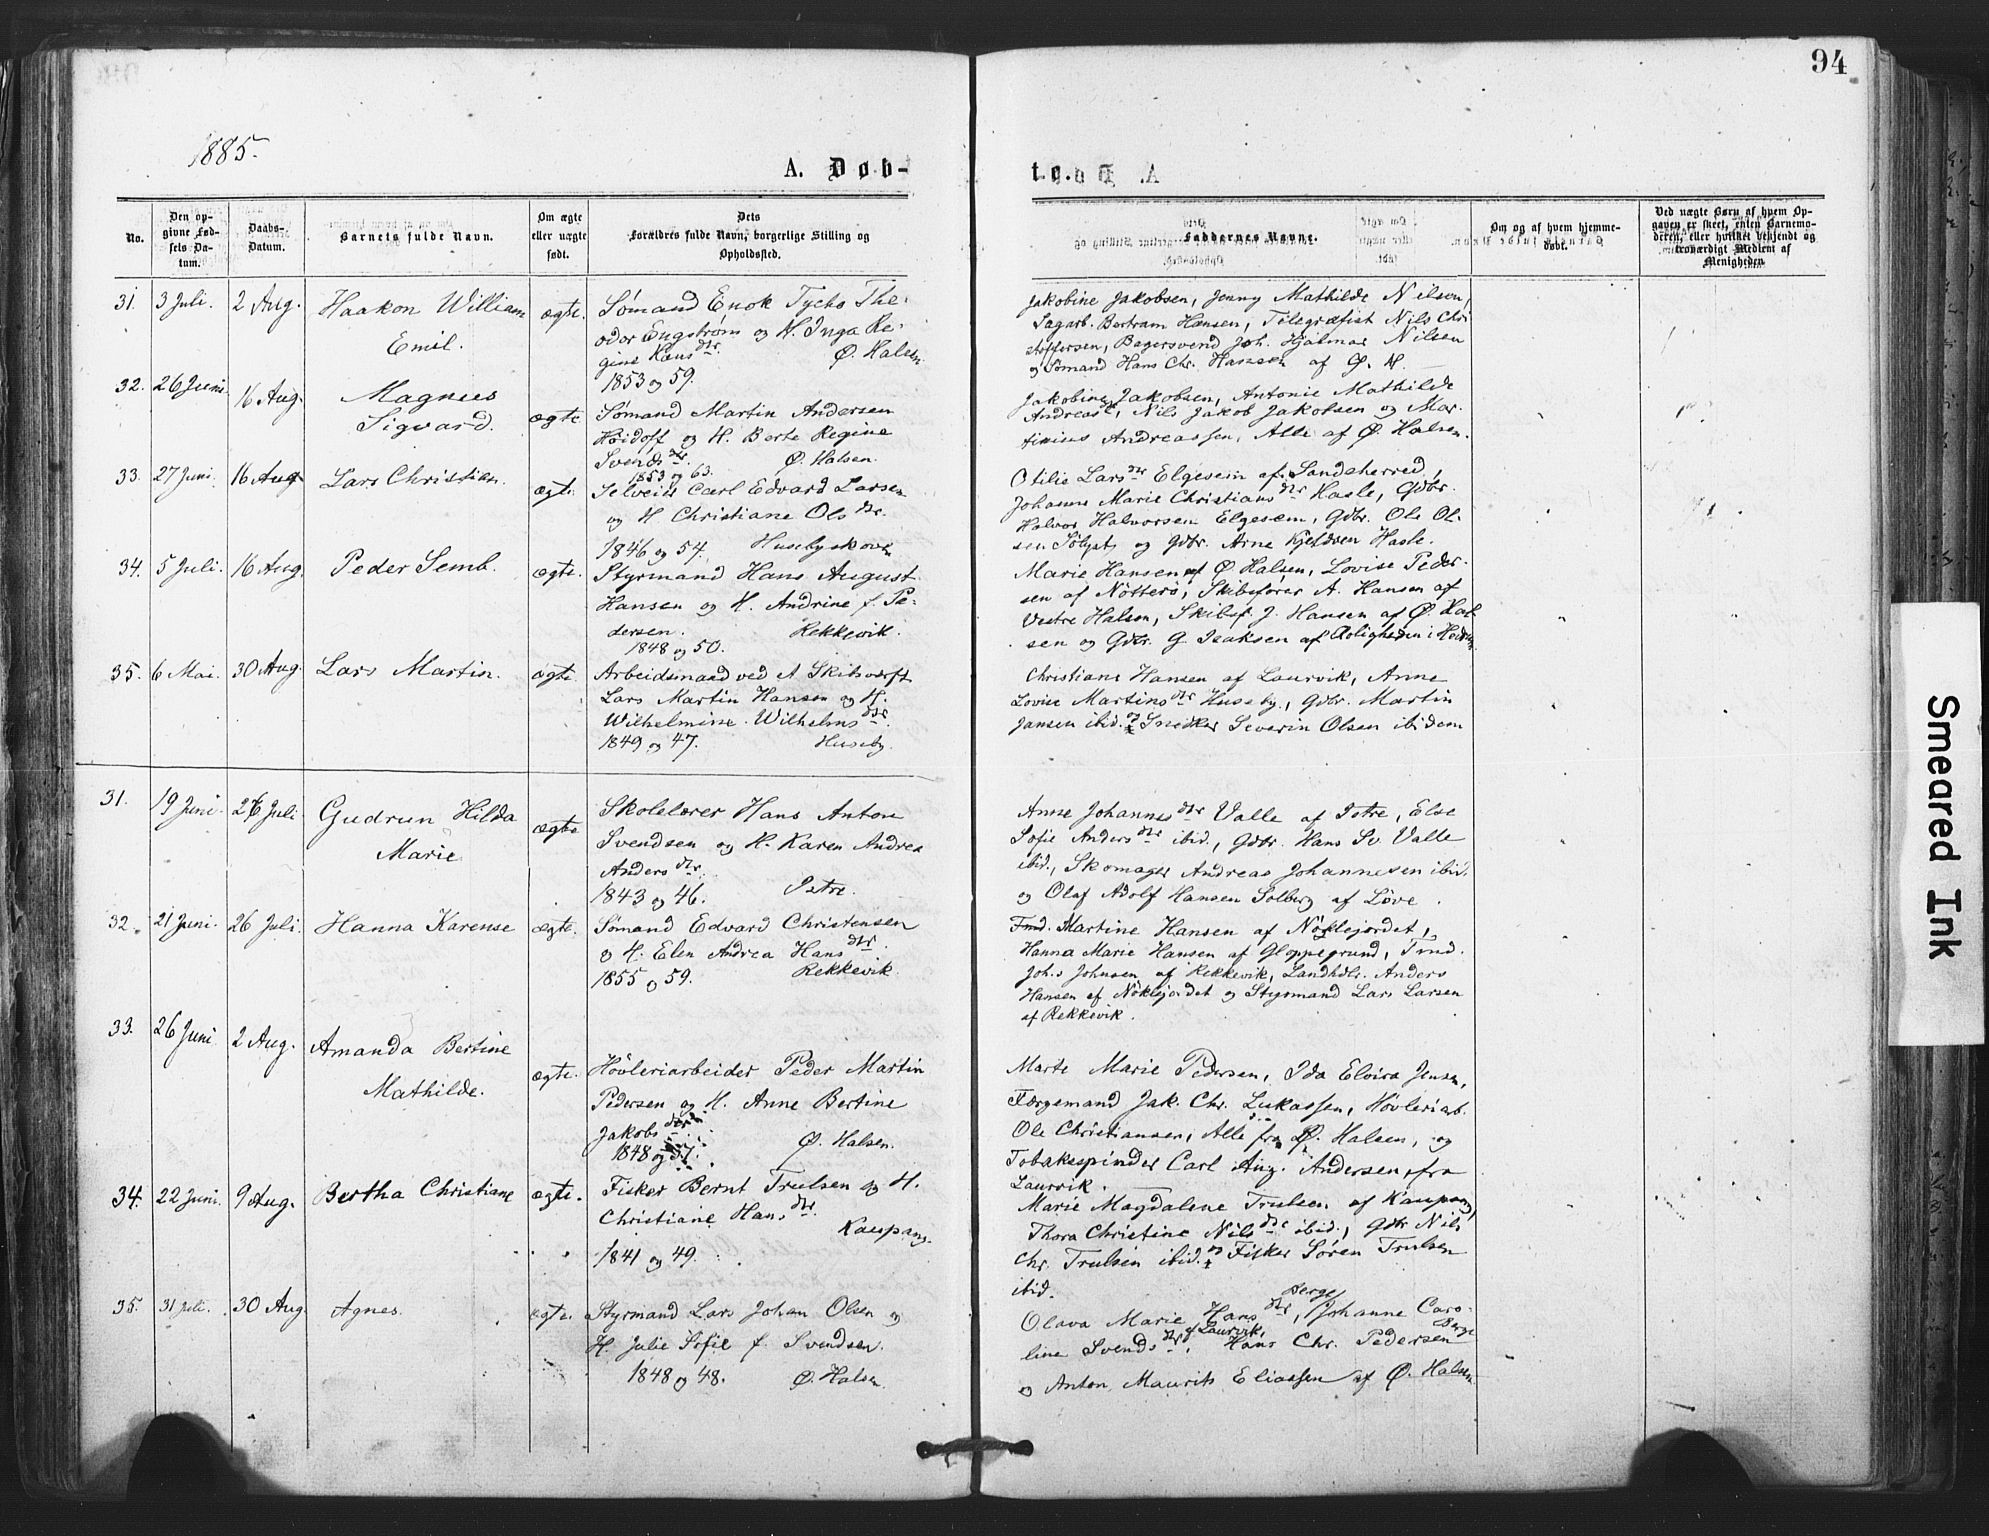 94
1885.
A. Døb-
te.
No.
Den op-
givne Fød-
sels Da-
tum.
Daabs-
Datum.
Barnets fulde Navn.
Om ægte
eller uægte
født.
Dets
Forældres fulde Navn, borgerlige Stilling og
Opholdssted.
Faddernes Navne.
Om og af hvem hjemme-
døbt.
Ved uægte Børn af hvem Op-
gaven er skeet, enten Barnemo-
deren, eller hvilket vekjendt og
troværdigt Medlem af
Menigheden
31. 3 Juli. 2 Aug. Haakon William
Emil.
ægte.
Sømand Enok Tycho The-
odor Engstrøm og H. Inga Re-
gine Hans dtr. Ø. Halsen.
1853 og 59.
Jakobine Jakobsen, Jenny Mathilde Nilsen,
Sagarb. Bertram Hansen, Telegrafist Nils Chri
stoffersen, Bagersvend Joh. Hjalmar Nilsen
og Sømand Hans Chr. Hansen af Ø. H.
32. 26 Juni. 16 Aug. Magnus
Sigvard.
ægte
Sømand Martin Andersen
Høidoff og H. Berte Regine
Svends dtr. Ø. Halsen.
1853 og 63.
Jakobine Jakobsen, Antonie Mathilde
Andreas, Nils Jakob Jakobsen og Mar-
tinius Andreassen, Alle af Ø. Halsen.
33. 27 Juni. 16 Aug. Lars Christian.
ægte
Selveier Carl Edvard Larsen
og H Christiane Ols dtr.
1846 og 54. Husebyskoven
Otilie Lars dtr Elgesem af Sandeherred,
Johanne Marie Christians dtr Hasle, Gdbr.
Halvor Halvorsen Elgesem, Gdbr. Ole Ol-
sen Sølyst og Gdbr. Arne Kjeldsen Hasle.
34. 5 Juli. 16 Aug. Peder Semb.
ægte.
Styrmand Hans August
Hansen og H. Andrine f. Pe-
dersen. Rekkevik.
1848 og 50.
Marie Hansen af Ø Halsen, Lovise Peder-
sen af Nötterö, Skibsfører A. Hansen af
Vestre Halsen, Skibsf. J. Hansen af Ø. Hal-
sen og Gdbr. G. Isaksen af Bolighden i
35. 6 Mai. 30 Aug. Lars Martin.
ægte.
Arbeidsmand ved A Skibsværft
Lars Martin Hansen og H.
Wilhelmine Wilhelms dtr.
1849 og 47. Huseby.
Christiane Hansen af Laurvik, Anne
Lovise Martins dtr Huseby, Gdbr. Martin
Jansen ibid. og Snedker Severin Olsen ibidem
31. 19 Juni. 26 Juli Gudrun Hilda
Marie
ægte
Skolelærer Hans Anton
Svendsen og H. Karen Andrea
Anders dtr.
1843 og 46. Istre.
Anne Johannes dtr Valle af Istre, Else
Sofie Anders dtr ibid., Gdbr. Hans Sv. Valle
ibid., Skomager Andreas Johannesen ibid.
og Olaf Adolf Hansen Solberg af Löve.
32. 21 Juni. 26 Juli. Hanna Karense
ægte.
Sømand Edvard Christensen
og H. Elen Andrea Hans dtr.
1855 og 59. Rekkevik.
Fmd. Martine Hansen af Nöklejordet,
Hanna Marie Hansen af Gloppegrund, Tmd.
Johs Johnsen af Rekkevik, Landhdlr. Anders
Hansen af Nöklejordet og Styrmand Lars Larsen
af Rekkevik.
33. 26 Juni 2 Aug. Amanda Bertine
Mathilde.
ægte.
Høvleriarbeider Peder Martin
Pedersen og H. Anne Bertine
Jakobs dtr Ø. Halsen.
1848 og 57.
Marte Marie Pedersen, Ida Elvira Jensen,
Færgemand Jak. Chr. Lukassen, Høvleriarb.
Ole Christiansen, Alle fra Ø. Halsen, og
Tobakspinder Carl Aug. Andersen fra
Laurvik.
34. 22 Juni. 9 Aug. Bertha Christiane
ægte.
Fisker Bernt Trulsen og H.
Christiane Hans dtr.
Kaupang.
1841 og 49.
Marie Magdalene Trulsen af Kaupang,
Thora Christine Nils dtr ibid., Gdbr Nils
Chr. Trulsen ibid. og Fisker Sören Trulsen
ibid.
35. 31 Juli. 30 Aug. Agnes.
ægte.
Styrmand Lars Johan Olsen og
H. Julie Sofie f. Svendsen.
1848 og 48. Ø. Halsen.
Berge
Olava Marie Hans dtr, Johanne Caro-
line Svends dtr af Laurvik, Hans Chr. Pedersen Berge
og Anton Maurits Eliassen af Ø. Halsen.
Smeared Ink